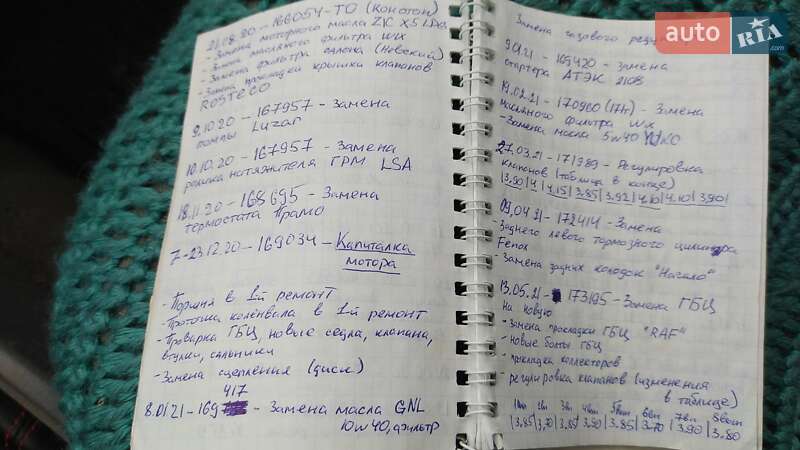 21.08.20-166054-ТО (Конотоп)
- Замена моторного масла ZIC X5
- Замена масляного фильтра WIX
- Замена фильтра салона (Невский)
- Замена прокладки крышки клапанов
ROSTECO
9.10.20-167957-Замена
помпы Luzar
10.10.20-167957-Замена
ролика натяжителя ГРМ LSA
18.11.20-168695-Замена
термостата Прамо
7-23.12.20-169034-Капиталка
мотора
- Поршня в 1й ремонт
- Проточка коленвала в 1й ремонт
- Проварка ГБЦ, новые седла, клапана,
втулки, сальники
- Замена сцепления (диск)
417
8.01.21-169 - Замена масла GNL
10w40, фильтр
Замена газового
9.01.21-169420-замена
стартера АТЭК 2108
19.02.21-170960 (17кг)-Замена
масляного фильтра Wx
- Замена масла 5w40
27.03.21-171989-Регулировка
клапанов (таблица в конце)
|3.90|4|4.15|3.85|3.92|4.10|4.10|3.90|
09.04.21-172414-Замена
- Заднего левого тормозного цилиндра
Fenox
- Замена задних колодок "Начало"
13.05.21- 173195-Замена ГБЦ
на новую
- замена прокладки ГБЦ "RAF"
- новые болты ГБЦ
- прокладка коллекторов
- регулировка клапанов (изменения
в таблице)
1вып 2вп 3вп 4вып 5вып 6вп 7вп 8вып
|3.85|3.70|3.85|3.90|3.85|3.70|3.90|3.80
auto RIA
.com